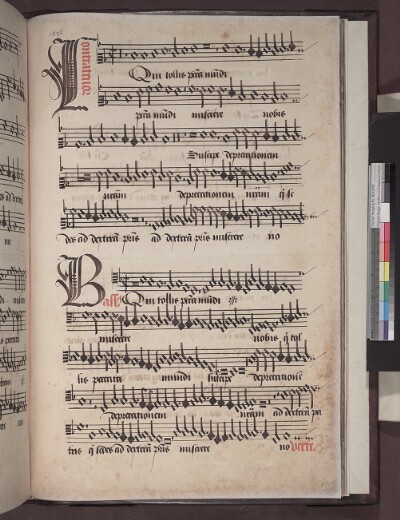 Contratenor
Qui tollis pcta mudi
pcta mudi miserere nobis
Suscipe deprecationem
nram deprecationem nram q se
des ad dextera pris ad dextera pris miserere no
Bass
Qui tollis pcta mudi
miserere nobis q tol
lis peccata mundi suscipe deprecatione
deprecationem nram ad dextera pa
tris q sedes ad dextera pris miserere no verte.